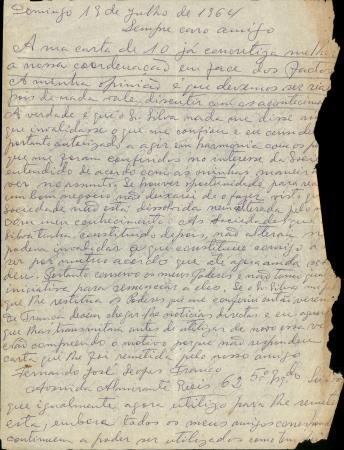 Domingo 19 de julho de 1964
Sempre caro amigo
A sua carta de 10 já concretiza melhor
a nossa coordenação em face dos factos
A minha opinião é que devemos ser
pois de nada vale discutir com os acontecimen
A verdade é que o Sr. Silva nada me disse
que invalidasse o que me confiou e eu
portanto autorizado a agir em harmonia com os po
que me foram conferidos no interesse da Socie
entendido de acordo com as minhas maneiras
ver no assunto. Se houver oportunidade para
um bom negocio, não deixarei de o fazer, visto
Sociedade não está dissolvida nem alterada pelo
vem a conhecimento. As Sociedades que
Silva tenha constituido depois, não alteram
podem invalidar o que constituiu comigo a
ser por mutuo acordo que até agora ainda
deu. Portanto conservo os meus Poderes e não tomo
iniciativa para renunciar a eles. Se o Sr. Silva
que lhe restitua os Poderes que me conferiu então
De França devem chegar-lhe noticias directas e eu
que lhas transmitam antes de utilizar de novo essa
estão compreendo o motivo porque não respondeu
carta que lhe foi remetida pelo nosso amigo
Fernando José Lopes Franco
Avenida Almirante Reis 62 5º
que igualmente agora utilizo para lhe remeter
esta, embora todos os meus amigos
continuem a poder ser utilizados como